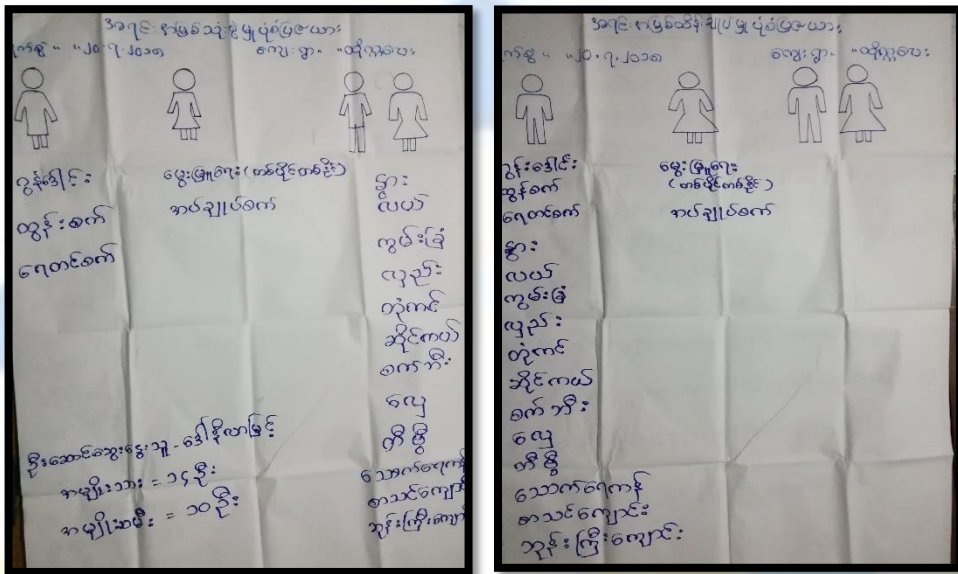 အရင်းအမြစ်သုံးစွဲမှုပုံစံပြဇယား
ကျေးရွာ - ထိုက္ကပေး
ထွန်းစက်
ရေတင်စက်
မွေးမြူရေး (တစ်ပိုင်တစ်နိုင်)
အပ်ချုပ်စက်
နွား
လယ်
ကွမ်းခြံ
လှည်း
တုံကင်
ဆိုင်ကယ်
စက်ဘီး
လှေ
တီဗွီ
သောက်ရေကန်
ဦးဆောင်ဆွေးနွေးသူ - ဒေါ်နီလာမြင့်
အမျိုးသား = ၁၄ ဦး
အမျိုးသမီး = ၁၀ ဦး
အရင်းအမြစ်ထိန်းချုပ်မှုပုံစံပြဇယား
ကျေးရွာ - ထိုက္ကပေး
ထွန်စက်
ရေတင်စက်
နွား
လယ်
ကွမ်းခြံ
လှည်း
တုံကင်
ဆိုင်ကယ်
စက်ဘီး
လှေ
တီဗွီ
သောက်ရေကန်
စာသင်ကျောင်း
ဘုန်းကြီးကျောင်း
မွေးမြူရေး
(တစ်ပိုင်တစ်နိုင်)
အပ်ချုပ်စက်